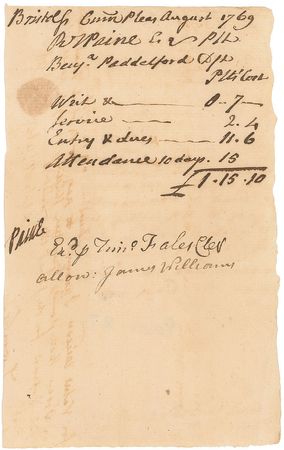 Bristol ss Com̄n Pleas August 1769
R T Paine Esqr Plt
Benjᵃ Paddelford Dft
Plts Cost
Writ & — 0-7-
Service — 2.4
Entry & dues — 11.6
Attendance 10 days. 15
£ 1.15.10
Paine
Exᵈ p Timᵒ Fales Cler
allow: James Williams